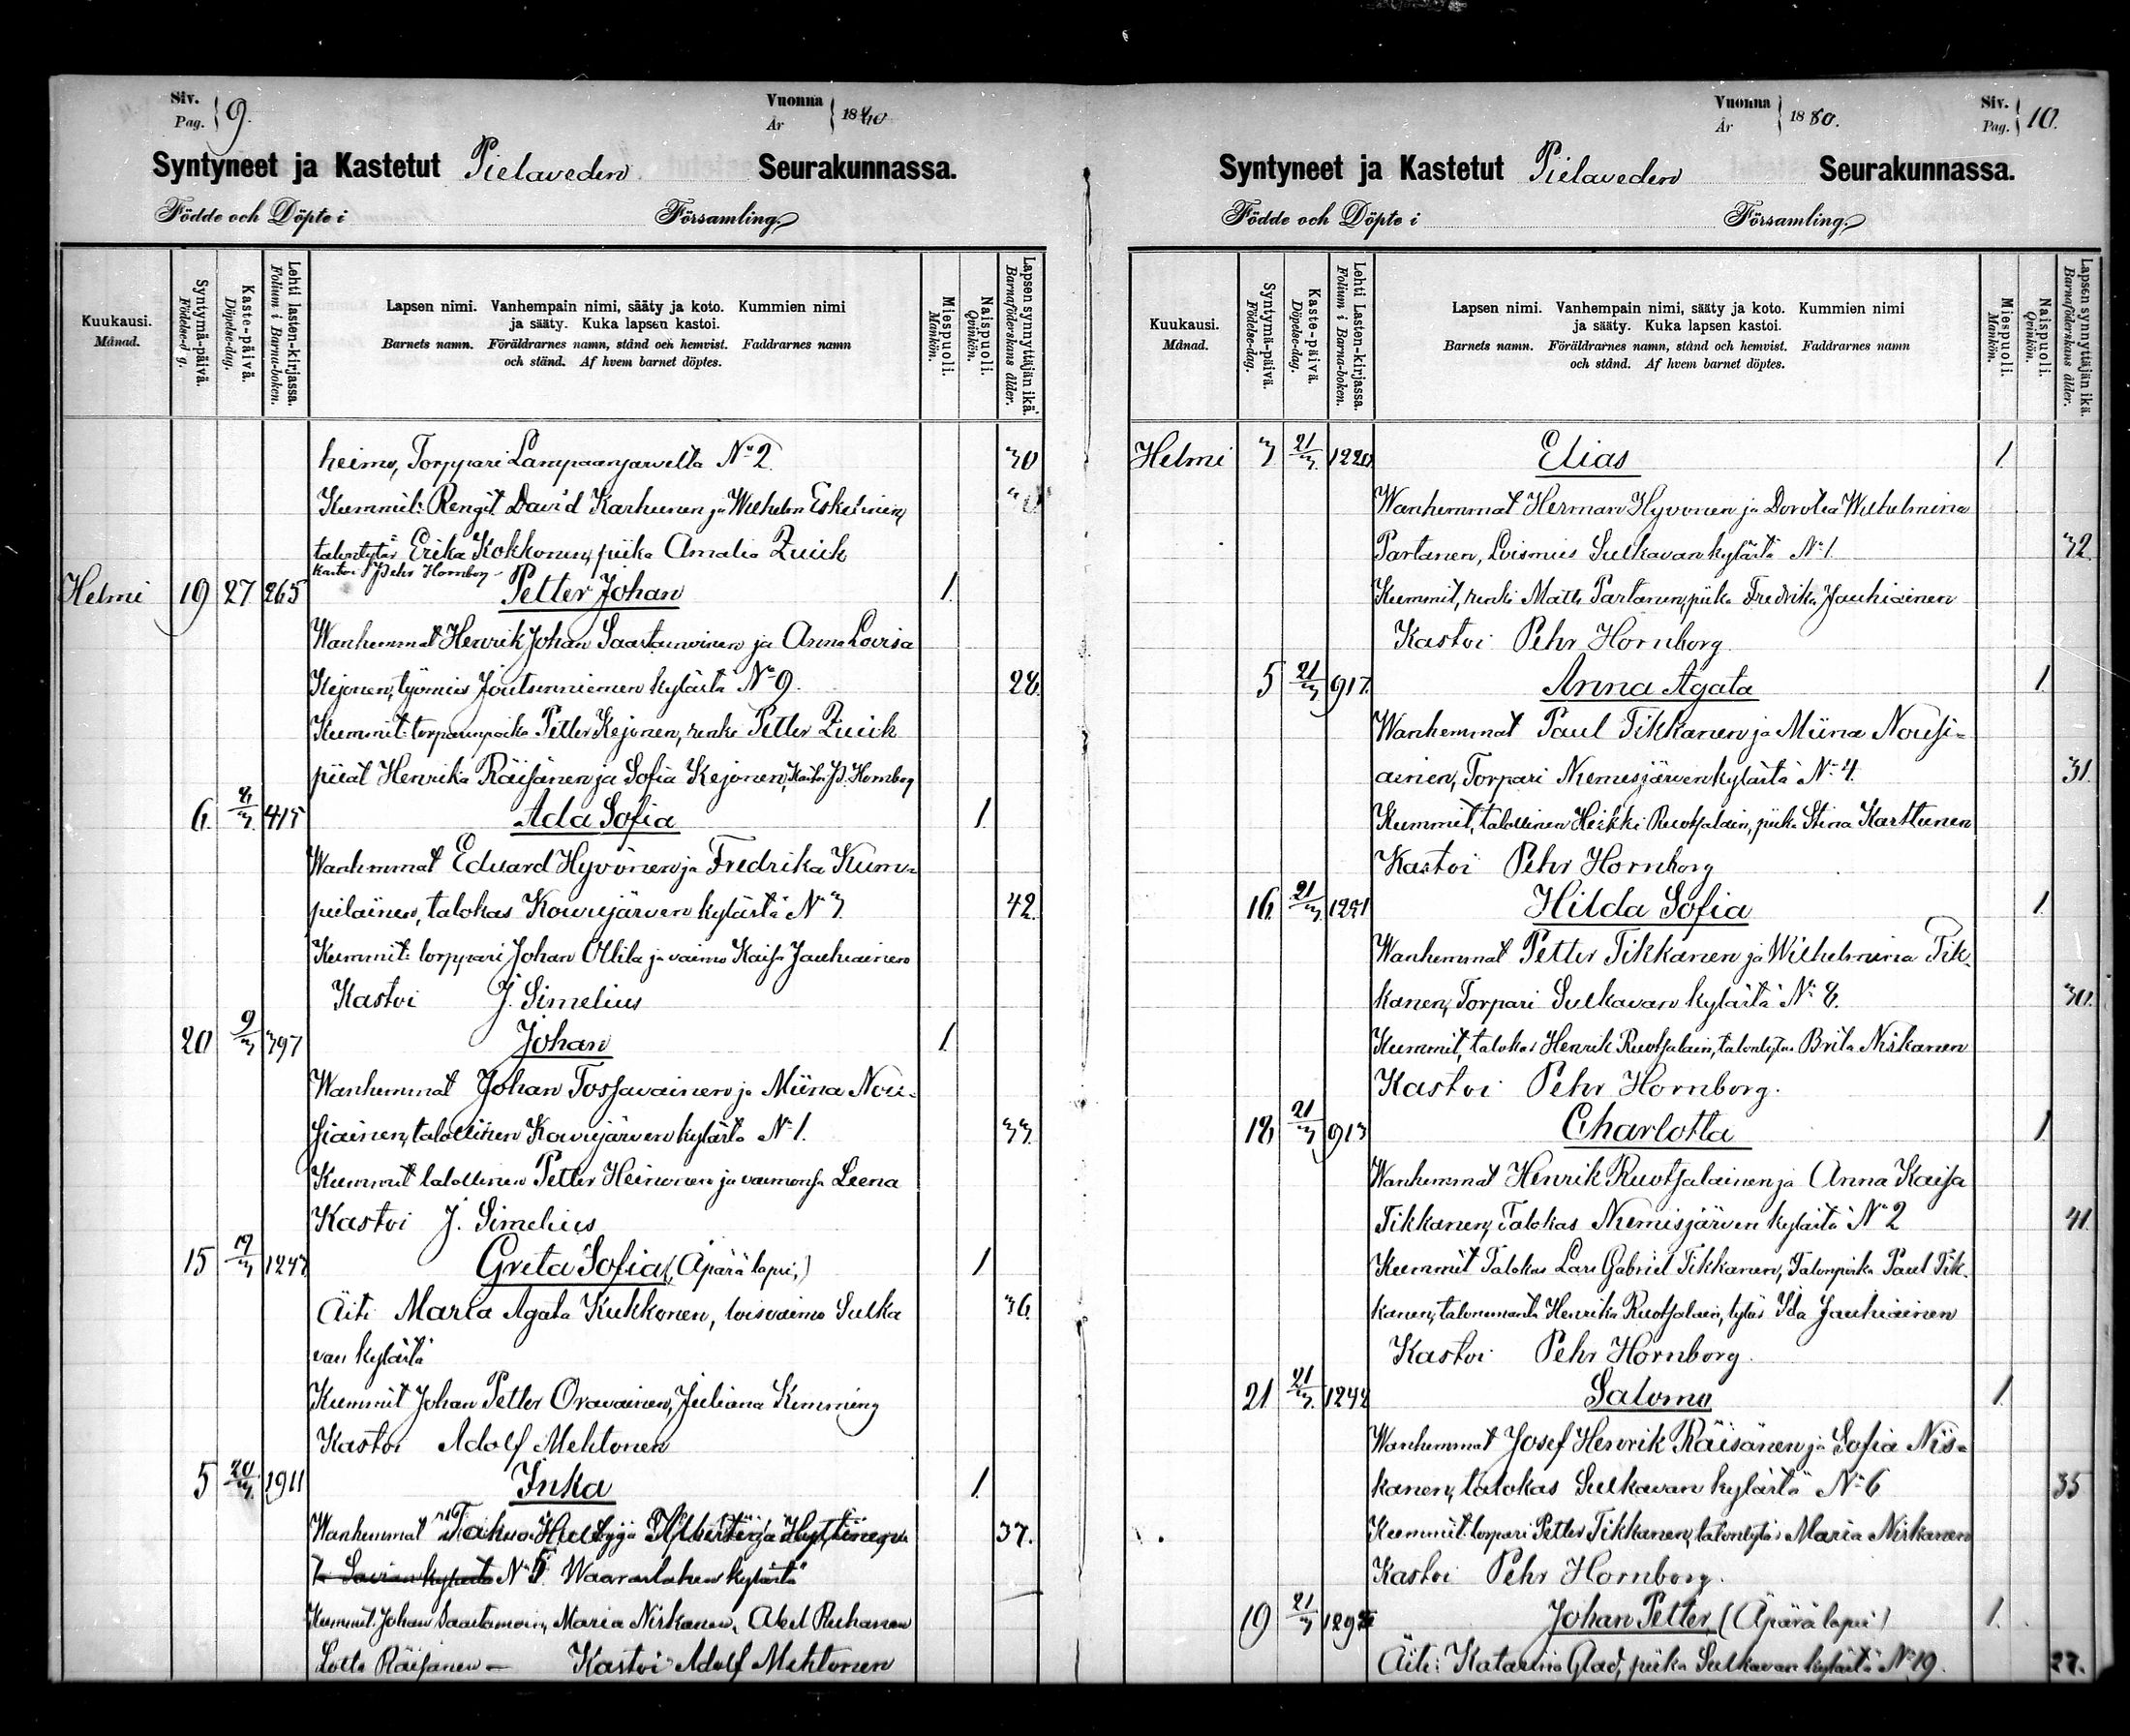 Siv. Pag. 9.
Vuonna År 1880
Syntyneet ja Kastetut Pielaveden Seurakunnassa.
Födde och Döpte i Församling.
Kuukausi. Månad.
Syntymä-päivä. Födelse-dag.
Kaste-päivä. Döpelse-dag.
Lehti lasten-kirjassa. Folium i Barna-boken.
Lapsen nimi. Vanhempain nimi, sääty ja koto. Kummien nimi
ja sääty. Kuka lapsen kastoi.
Barnets namn. Föräldrarnes namn, stånd och hemvist. Faddrarnes namn
och stånd. Af hvem barnet döptes.
Miespuoli. Mankön.
Naispuoli. Qvinkön.
Lapsen synnyttäjän ikä. Barnaföderskans ålder.
heimo, Torppari Lampaanjärveltä No 2. 30
Kummit: Rengit David Karhunen ja Wilhelm Eskelinen,
talontytär Erika Kokkonen, piika Amalia Zwick
Kastoi Pehr Hornborg
Helmi 19 27 265 Petter Johan 1.
Wanhemmat Henrik Johan Saastamoinen ja Anna Lovisa
Kejonen, työmies Joutsenniemen kylästä No 9. 28.
Kummit: torpanpoika Petter Kejonen, renki Petter Zwick
piiat Henrika Räisänen ja Sofia Kejonen, Kastoi P. Hornborg
6. 415 Ada Sofia 1.
Wanhemmat Eduard Hyvönen ja Fredrika Kum=
pulainen, talokas Kowujärven kylästä No 3. 42.
Kummit: torppari Johan Ollila ja vaimo Kaisa Jauhiainen
Kastoi J. Simelius
20 9/3 397 Johan 1.
Wanhemmat Johan Tossavainen ja Miina Nou-
siainen, talollinen Kowujärven kylästä No 1. 33.
Kummit talollinen Petter Heinonen ja vaimonsa Leena
Kastoi J. Simelius
15 19/3 1247 Greta Sofia (Äpärä lapsi,) 1
Äiti Maria Agata Kukkonen, loisvaimo Sulka 36.
van kylästä
Kummit Johan Petter Oravainen, Juliana Kemming
Kastoi Adolf Mehtonen
5 20/3 1911 Inka 1.
Wanhemmat 37.
No 5 Waaraslahen kylästä
Kummit. Johan Saastamoin, Maria Niskanen, Abel Ruhanen
Lotta Räisänen — Kastoi Adolf Mehtonen
Vuonna År 1880.
Siv. Pag. 10.
Syntyneet ja Kastetut Pielaveden Seurakunnassa.
Födde och Döpte i Församling.
Kuukausi. Månad.
Syntymä-päivä. Födelse-dag.
Kaste-päivä. Döpelse-dag.
Lehti Lasten-kirjassa. Folium i Barna-boken.
Lapsen nimi. Vanhempain nimi, sääty ja koto. Kummien nimi
ja sääty. Kuka lapsen kastoi.
Barnets namn. Föräldrarnes namn, stånd och hemvist. Faddrarnes namn
och stånd. Af hvem barnet döptes.
Miespuoli. Mankön.
Naispuoli. Qvinkön.
Lapsen synnyttäjän ikä. Barnaföderskans ålder.
Helmi 3 21/3 1220 Elias 1.
Wanhemmat Herman Hyvönen ja Dorotea Wilhelmina
Partanen, Loismies Sulkavankylästä No 1. 32.
Kummit, renki Matts Partanen, piika Fredrika Jauhiainen
Kastoi Pehr Hornborg
5 21/3 917. Anna Agata 1.
Wanhemmat Paul Tikkanen ja Miina Nousi=
ainen, Torpari Niemisjärvenkylästä No 4. 31.
Kummit, talollinen Heikki Ruotsalain, piika Stina Karttunen
Kastoi Pehr Hornborg
16. 21/3 1221 Hilda Sofia 1.
Wanhemmat Petter Tikkanen ja Wilhelmina Tik-
kanen, Torpari Sulkavan kylästä No 8. 30.
Kummit, talokas Henrik Ruotsalain, talontytär Brita Niskanen
Kastoi Pehr Hornborg.
18 21/3 913 Charlotta 1.
Wanhemmat Henrik Ruotsalainen ja Anna Kaisa
Tikkanen, Talokas Niemisjärven kylästä No 2 41.
Kummit Talokas Lars Gabriel Tikkanen, Talonpoika Paul Tik-
kanen, talonemäntä Henrika Ruotsalain, tytär Ida Jauhiainen
Kastoi Pehr Hornborg.
21 21/3 1242 Salomo 1.
Wanhemmat Josef Henrik Räisänen ja Sofia Nis=
kanen, talokas Sulkavan kylästä No 6 35
Kummit: torpari Petter Tikkanen, talontytär Maria Niskanen
Kastoi Pehr Hornborg.
19 21/3 Johan Petter, (Äpärä lapsi) 1.
Äiti: Katarina Glad, piika Sulkavan kylästä No 19. 27.